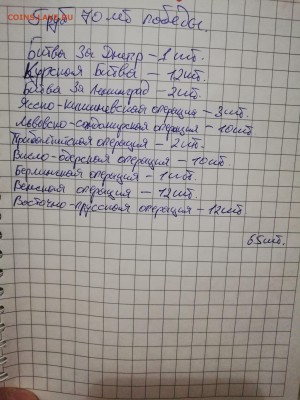 COINS.SU
5руб 70 лет победы.
Битва За Днепр - 1 шт.
Курская Битва - 12шт.
Битва За Ленинград - 2шт.
Ясско-Кишиневская операция - 3шт.
Львовско-сандомирская операция - 10шт
Прибалтийская операция - 2шт.
Висло-одерская операция - 10шт.
Берлинская операция - 1шт.
Венская операция - 12шт.
Восточно-прусская операция - 12шт.
65шт.